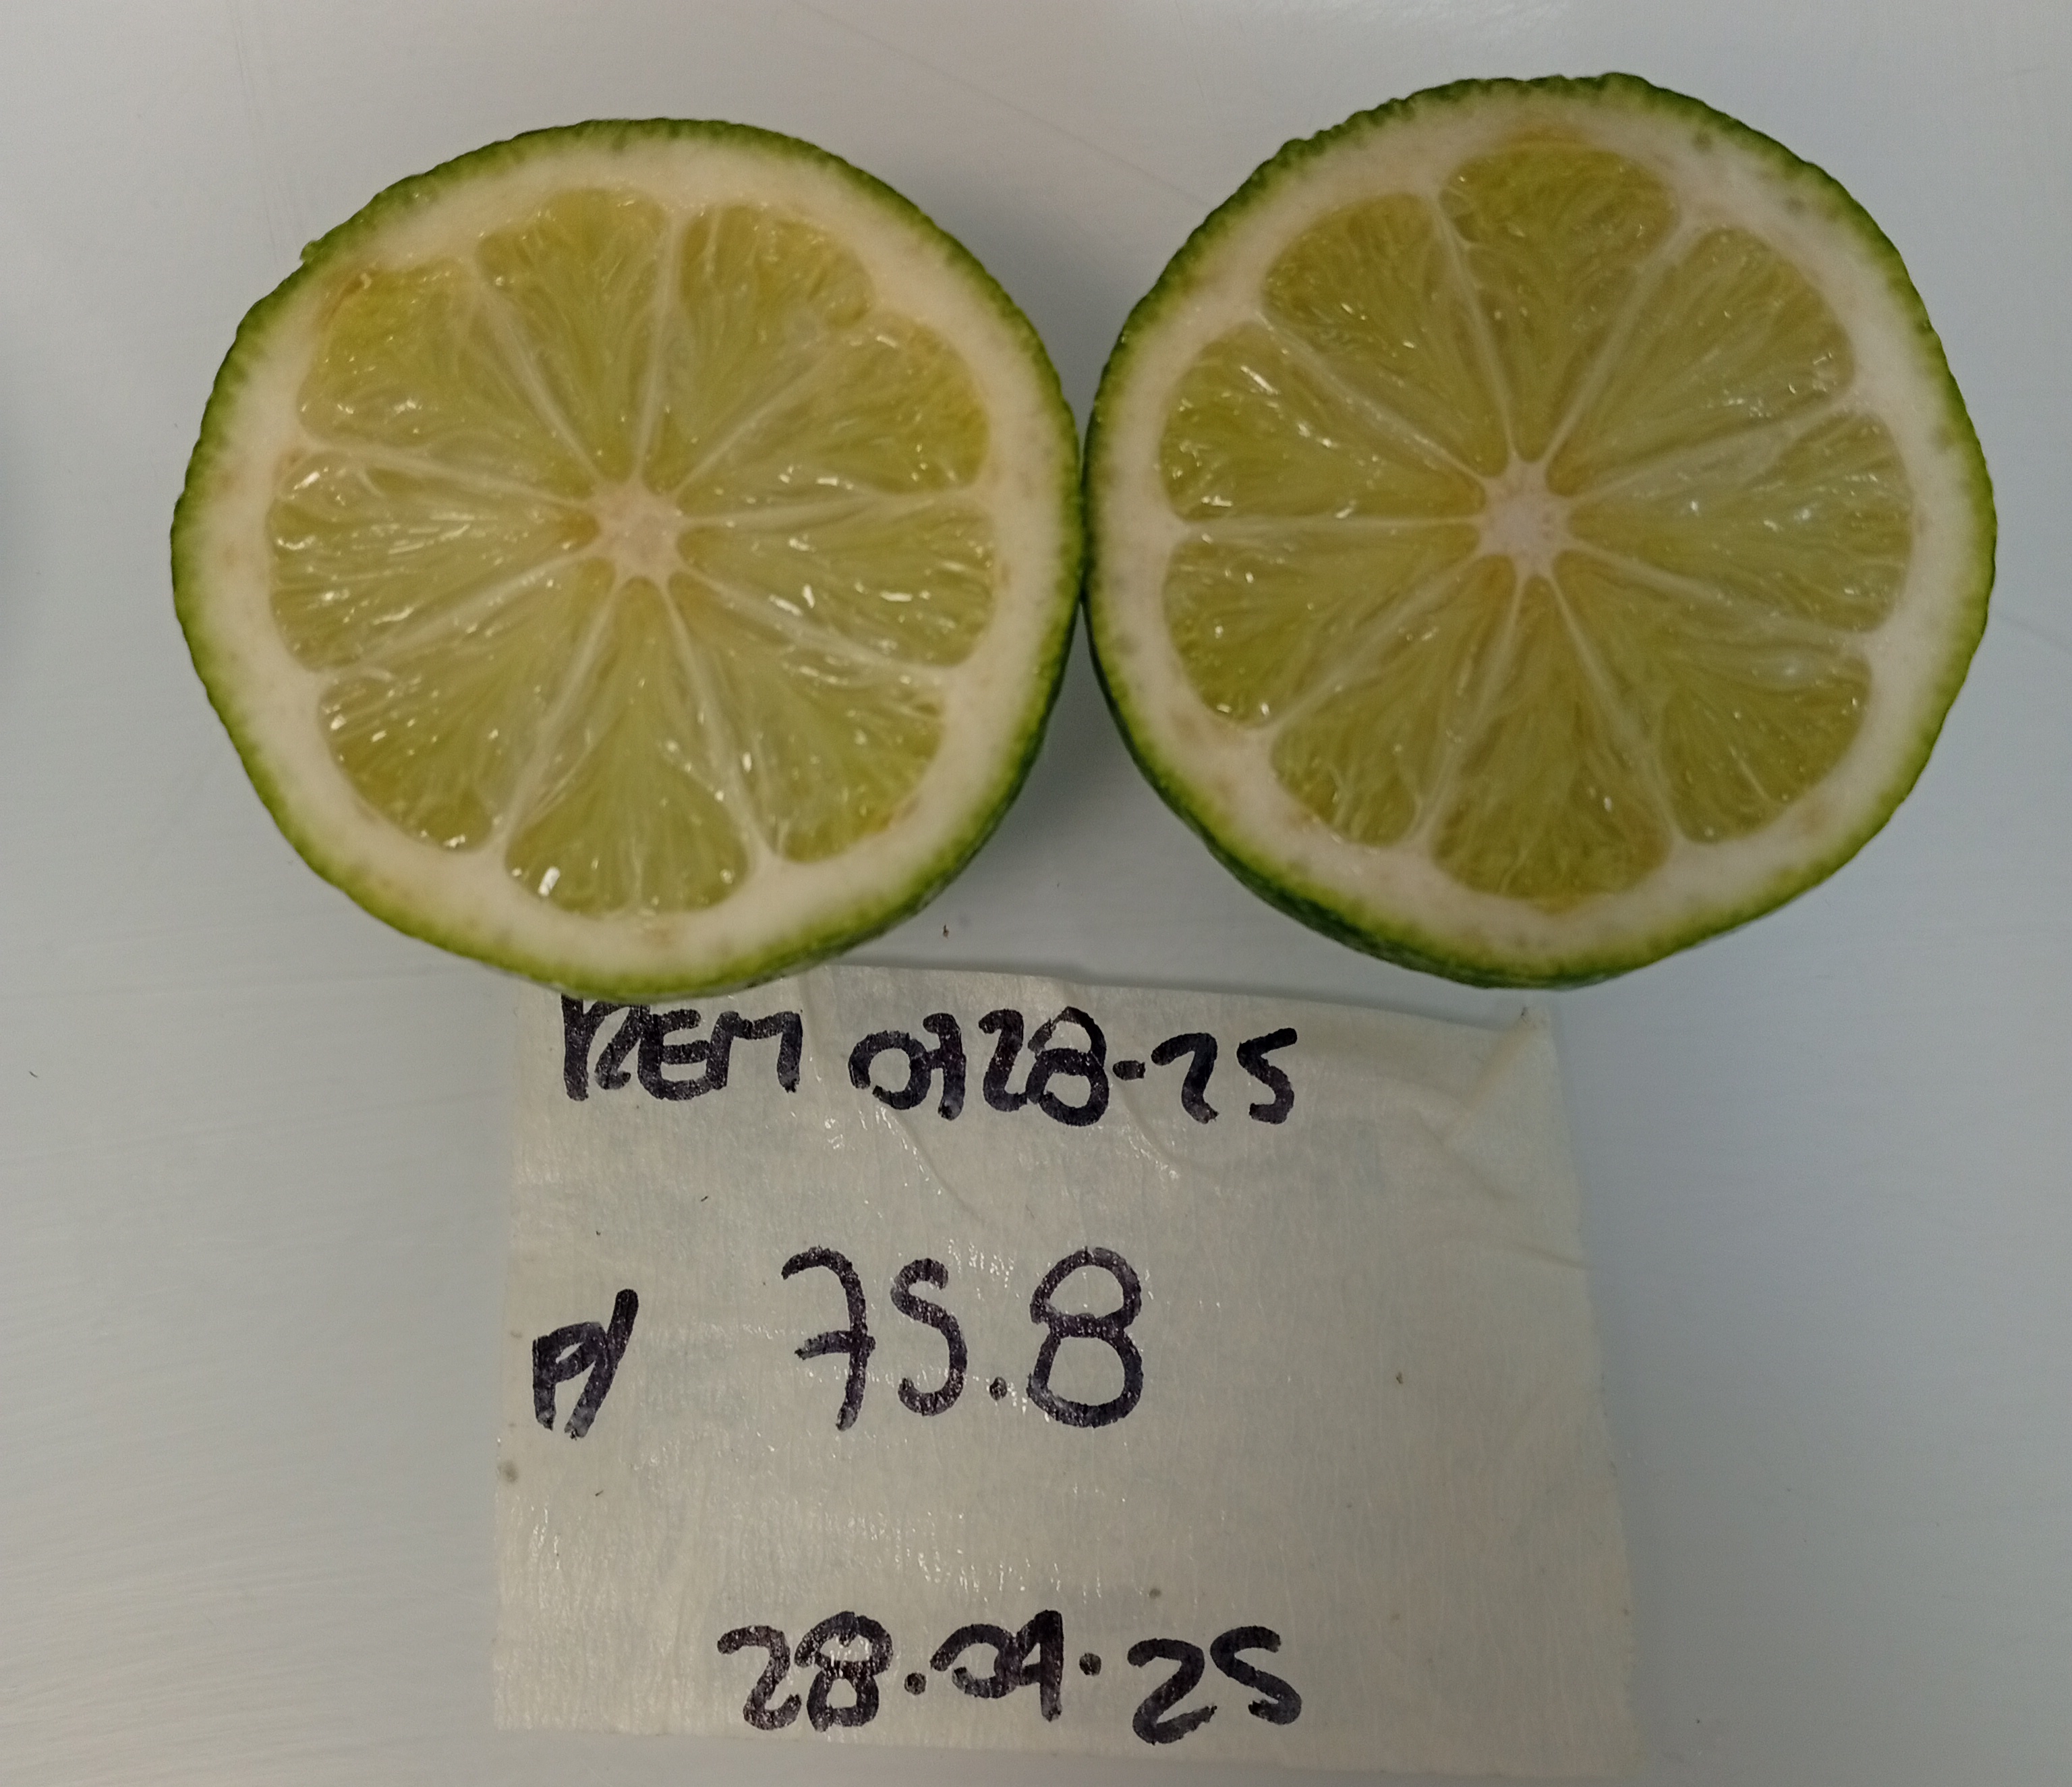 REM 0728-25
P/ 75.8
28.04.25